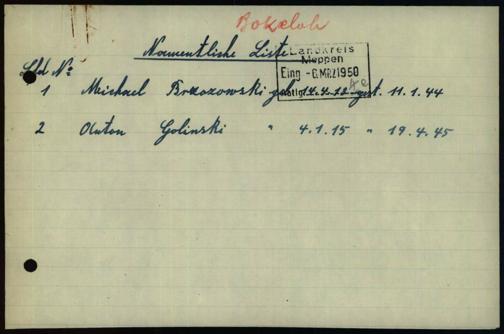 Bokeloh
Namentliche Liste
Landkreis
Meppen
Eing. -6. MRZ. 1950
Lfd Nº
1 Michael Brzozowski geb. 14.4.12 gest. 11.1.44
2 Anton Golinski " 4.1.15 " 19.4.45